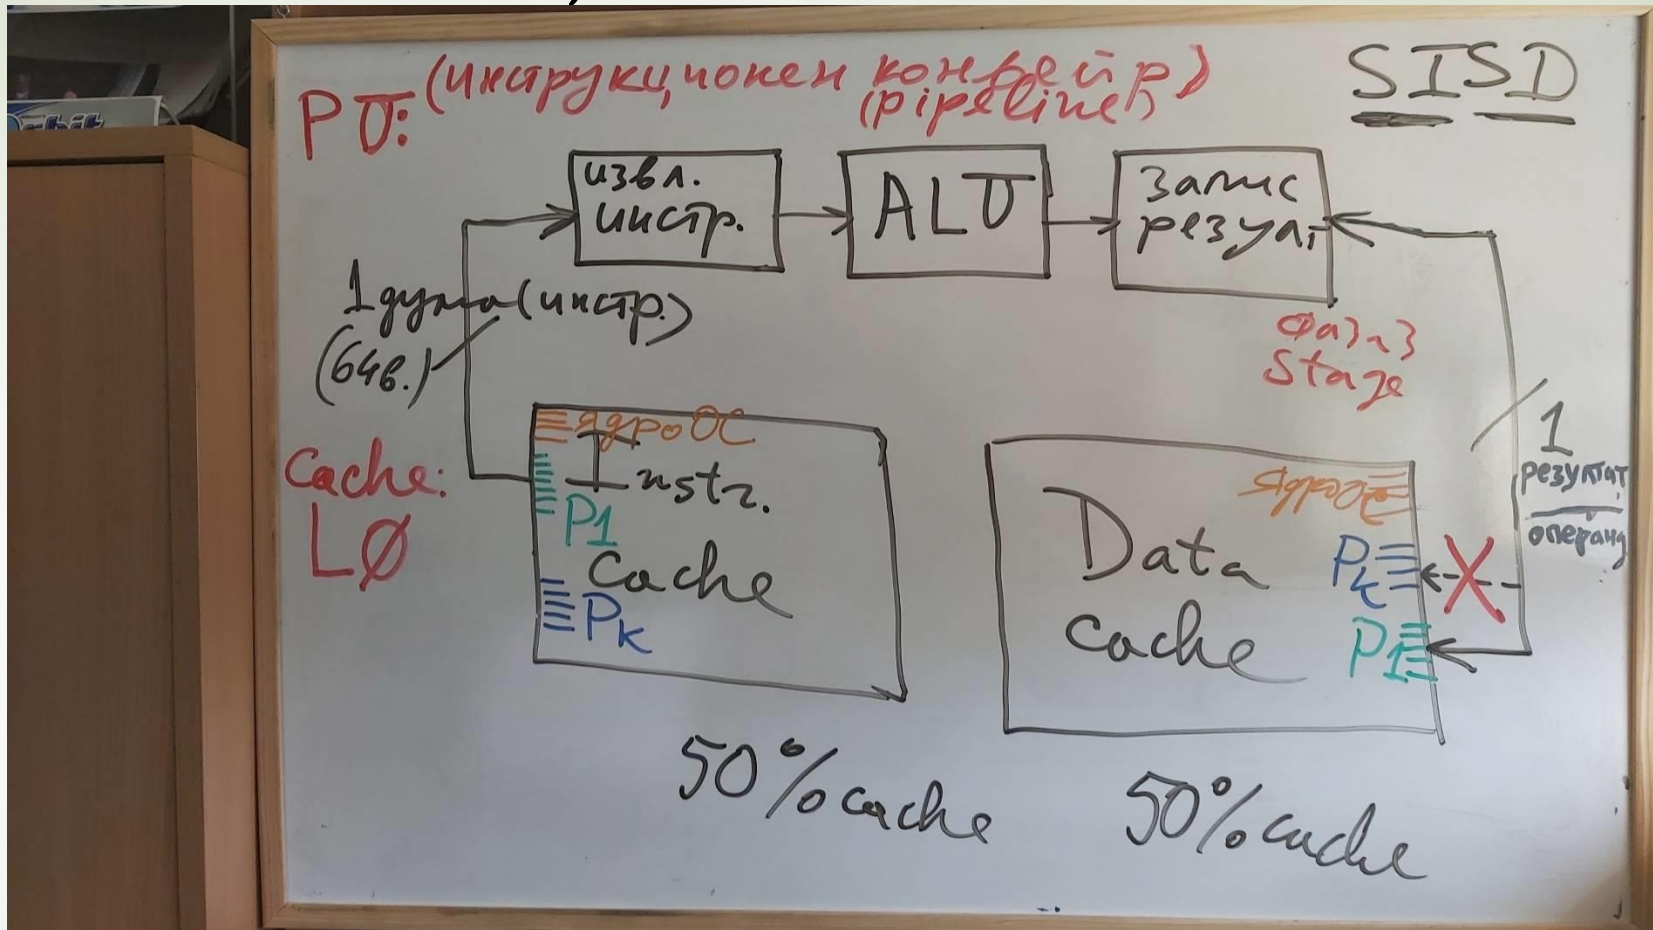 Orbit
PU: (инструкционен конвейр)
(pipeline)
SISD
извл.
инстр.
ALU
запис
резулт
1 дума (инстр.)
(64б.)
Фаза 3
Stage
Cache:
LØ
ядро ОС
Instr.
P1
Cache
Pk
Data
cache
Pk
P1
X
1
резултат
операнд
50% cache
50% cache